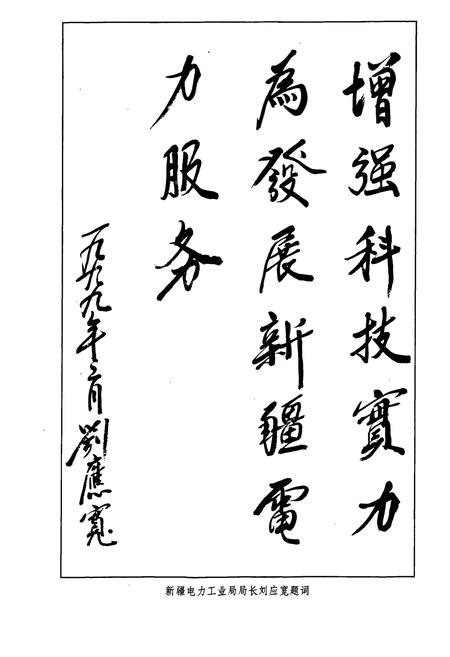 增强科技實力
為發展新疆電
力服务
一九九九年二月 劉應寬
新疆电力工业局局长刘应宽题词